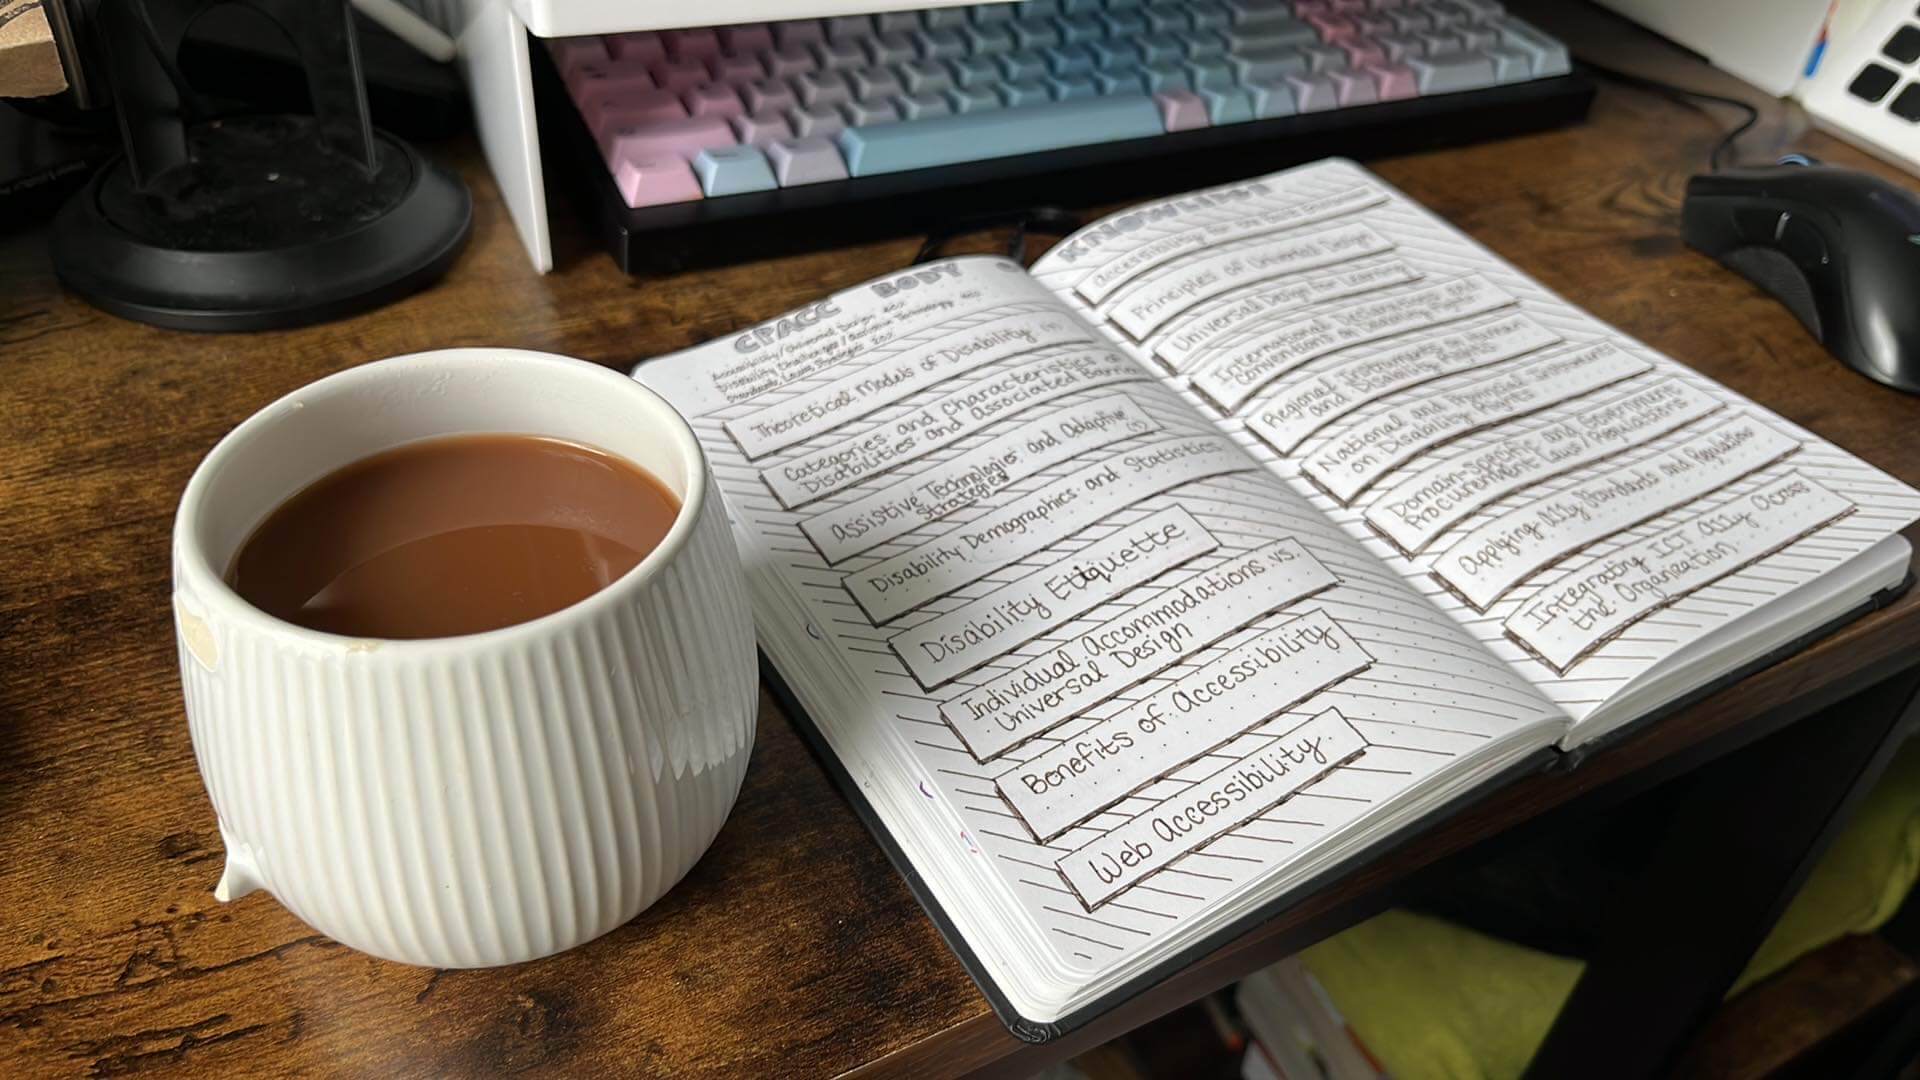 CPACC BODY
Accessibility/Universal Design 40%
Disability Challenges/Assistive Technology 40%
Standards, Laws, Strategies 20%
Theoretical Models of Disability
Categories and Characteristics of
Disabilities and Associated Barriers
Assistive Technologies and Adaptive
Strategies
Disability Demographics and Statistics
Disability Etiquette
Individual Accommodations vs.
Universal Design
Benefits of Accessibility
Web Accessibility
KNOWLEDGE
Accessibility
Principles of Universal Design
Universal Design for Learning
International Declarations and
Conventions on Disability Rights
Regional Instruments on Human
and Disability Rights
National and Provincial Instruments
on Disability Rights
Domain-Specific and Government
Procurement Laws/Regulations
Applying A11y Standards and Regulations
Integrating ICT A11y Across
the Organization